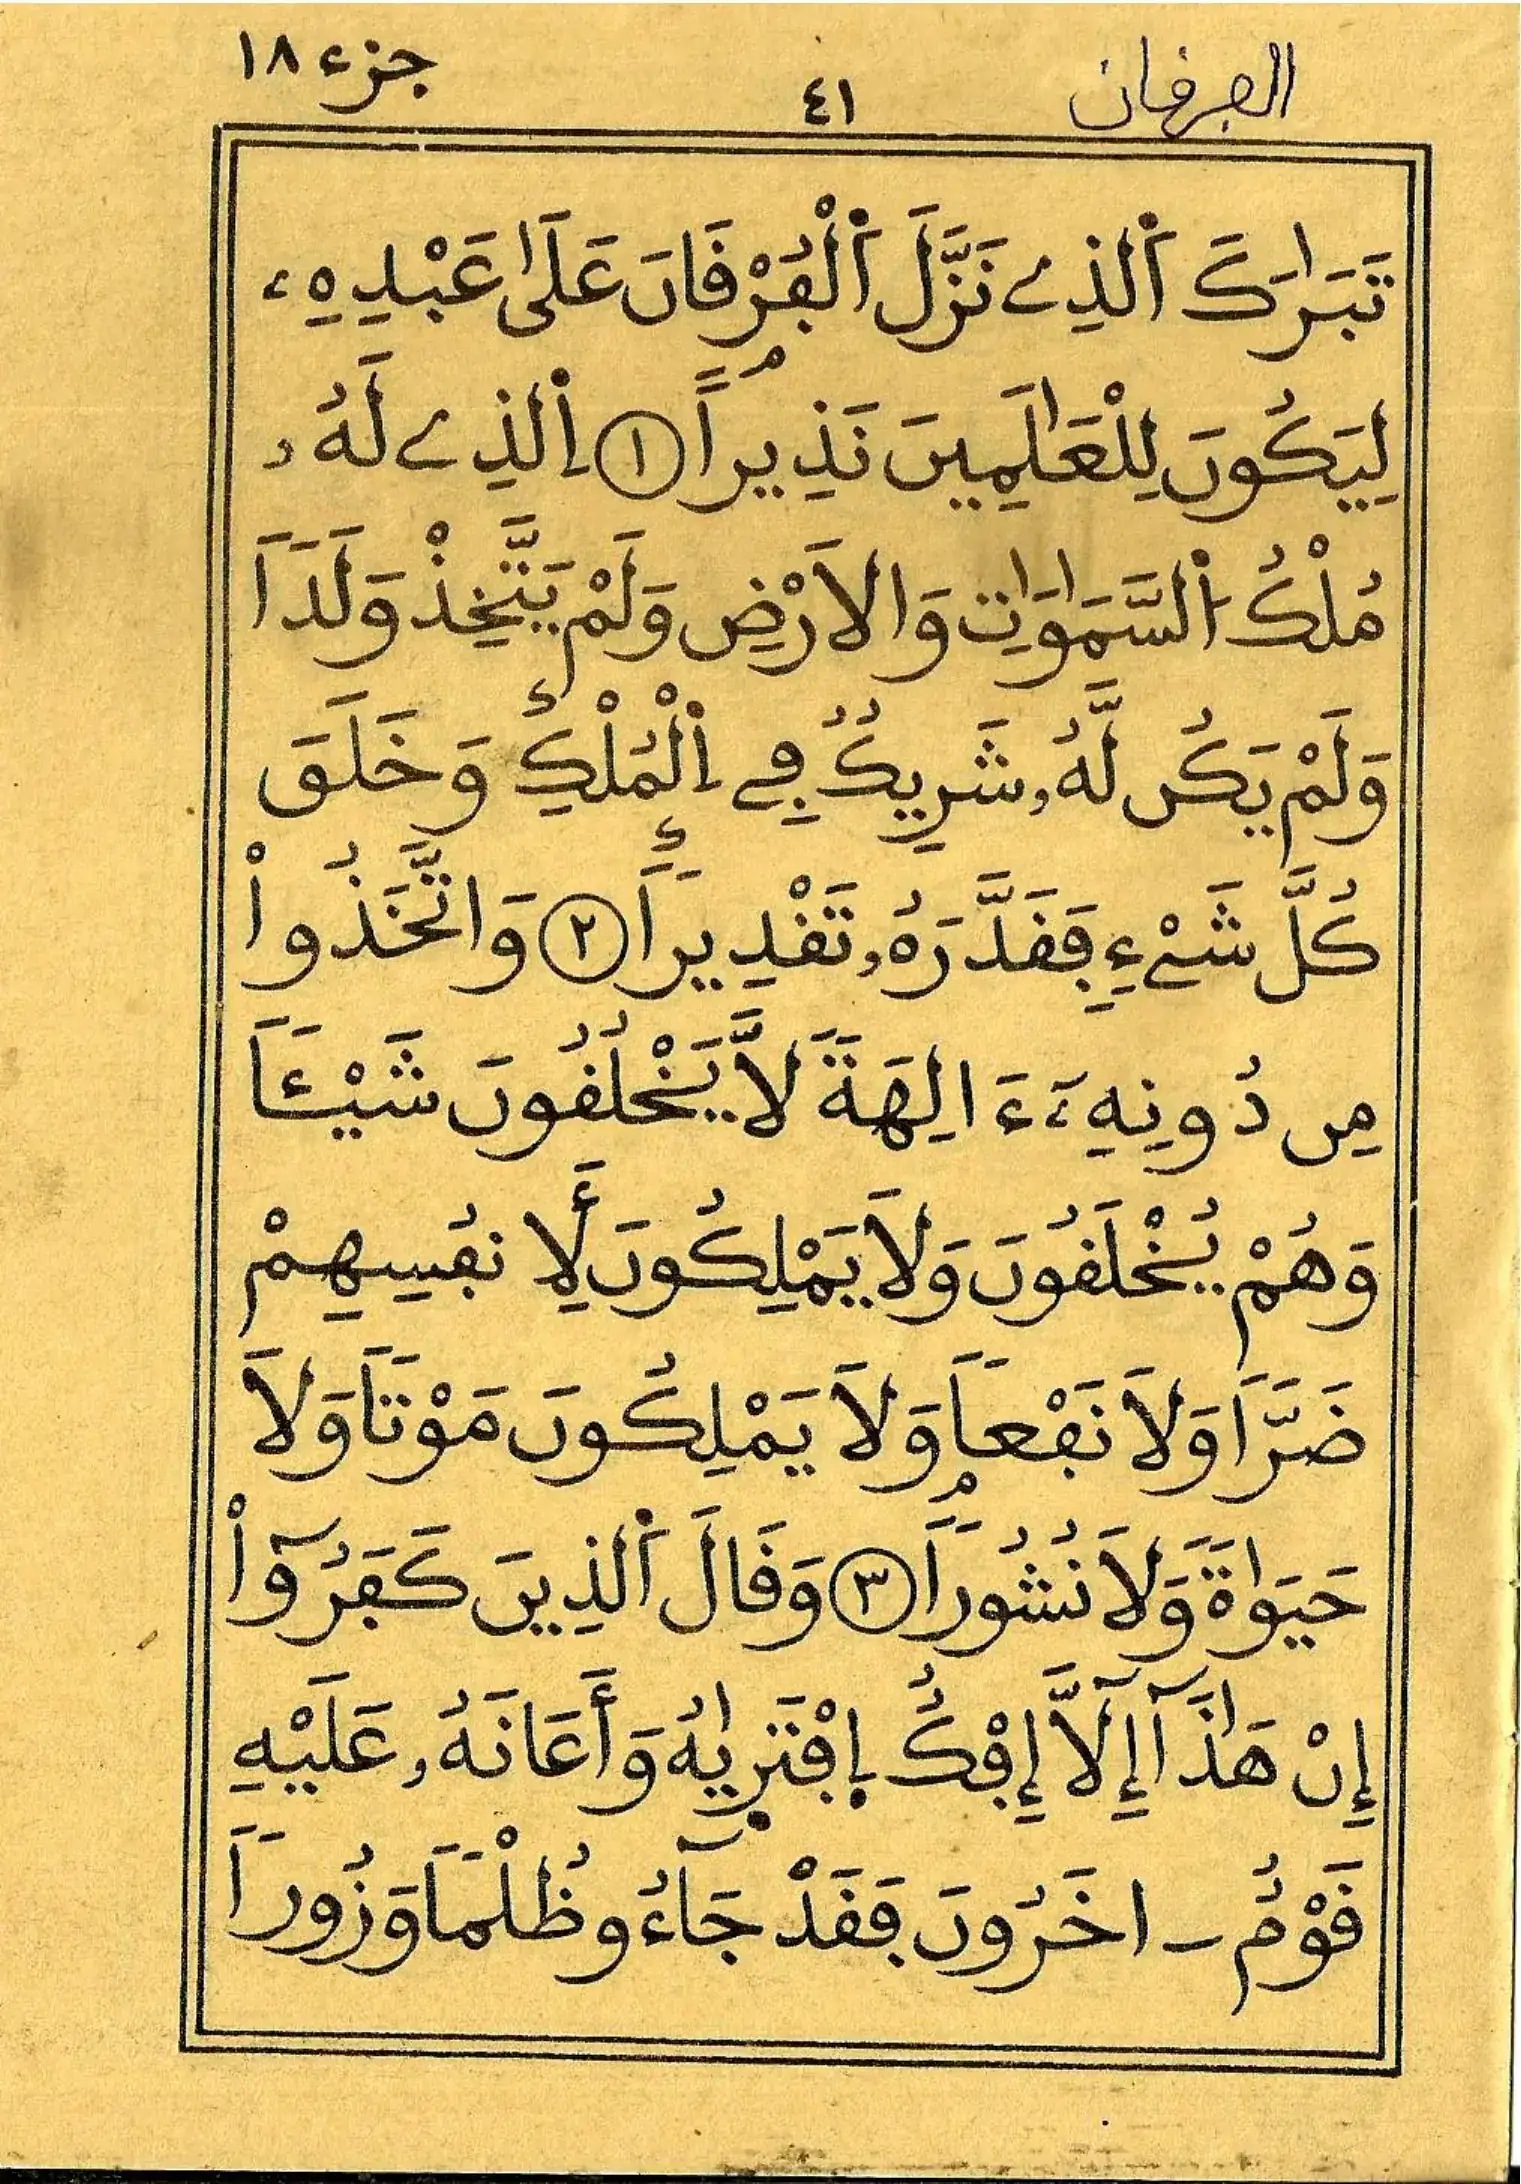 الفرقان ٤١ جزء ١٨
تَبَٰرَكَ ٱلذِے نَزَّلَ ٱلْفُرْقَانَ عَلَىٰ عَبْدِهِۦ
لِيَكُونَ لِلْعَٰلَمِينَ نَذِيراً ١ ٱلذِے لَهُۥ
مُلْكُ ٱلسَّمَٰوَٰتِ وَالَارْضِ وَلَمْ يَتَّخِذْ وَلَداً
وَلَمْ يَكُن لَّهُۥ شَرِيكٌ فِے اِ۬لْمُلْكِ وَخَلَقَ
كُلَّ شَےْءٍ فَقَدَّرَهُۥ تَقْدِيراً ٢ وَاتَّخَذُواْ
مِن دُونِهِۦٓ ءَالِهَةً لَّا يَخْلُقُونَ شَيْـٔاً
وَهُمْ يُخْلَقُونَ وَلَا يَمْلِكُونَ لِأَنفُسِهِمْ
ضَرّاً وَلَا نَفْعاً وَلَا يَمْلِكُونَ مَوْتاً وَلَا
حَيَوٰةً وَلَا نُشُوراً ٣ وَقَالَ ٱلذِينَ كَفَرُوٓاْ
إِنْ هَٰذَآ إِلَّآ إِفْكٌ اِ۪فْتَر۪يٰهُ وَأَعَانَهُۥ عَلَيْهِ
قَوْمٌ ـ اخَرُونَ فَقَدْ جَآءُو ظُلْماً وَزُوراً